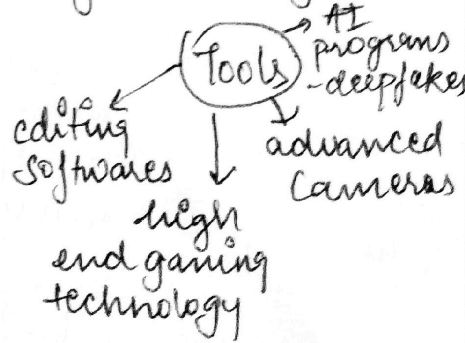 Tools
AI
programs
-deepfakes
editing
softwares
advanced
cameras
high
end gaming
technology